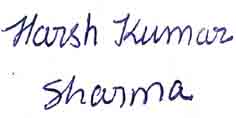 Harsh Kumar
Sharma